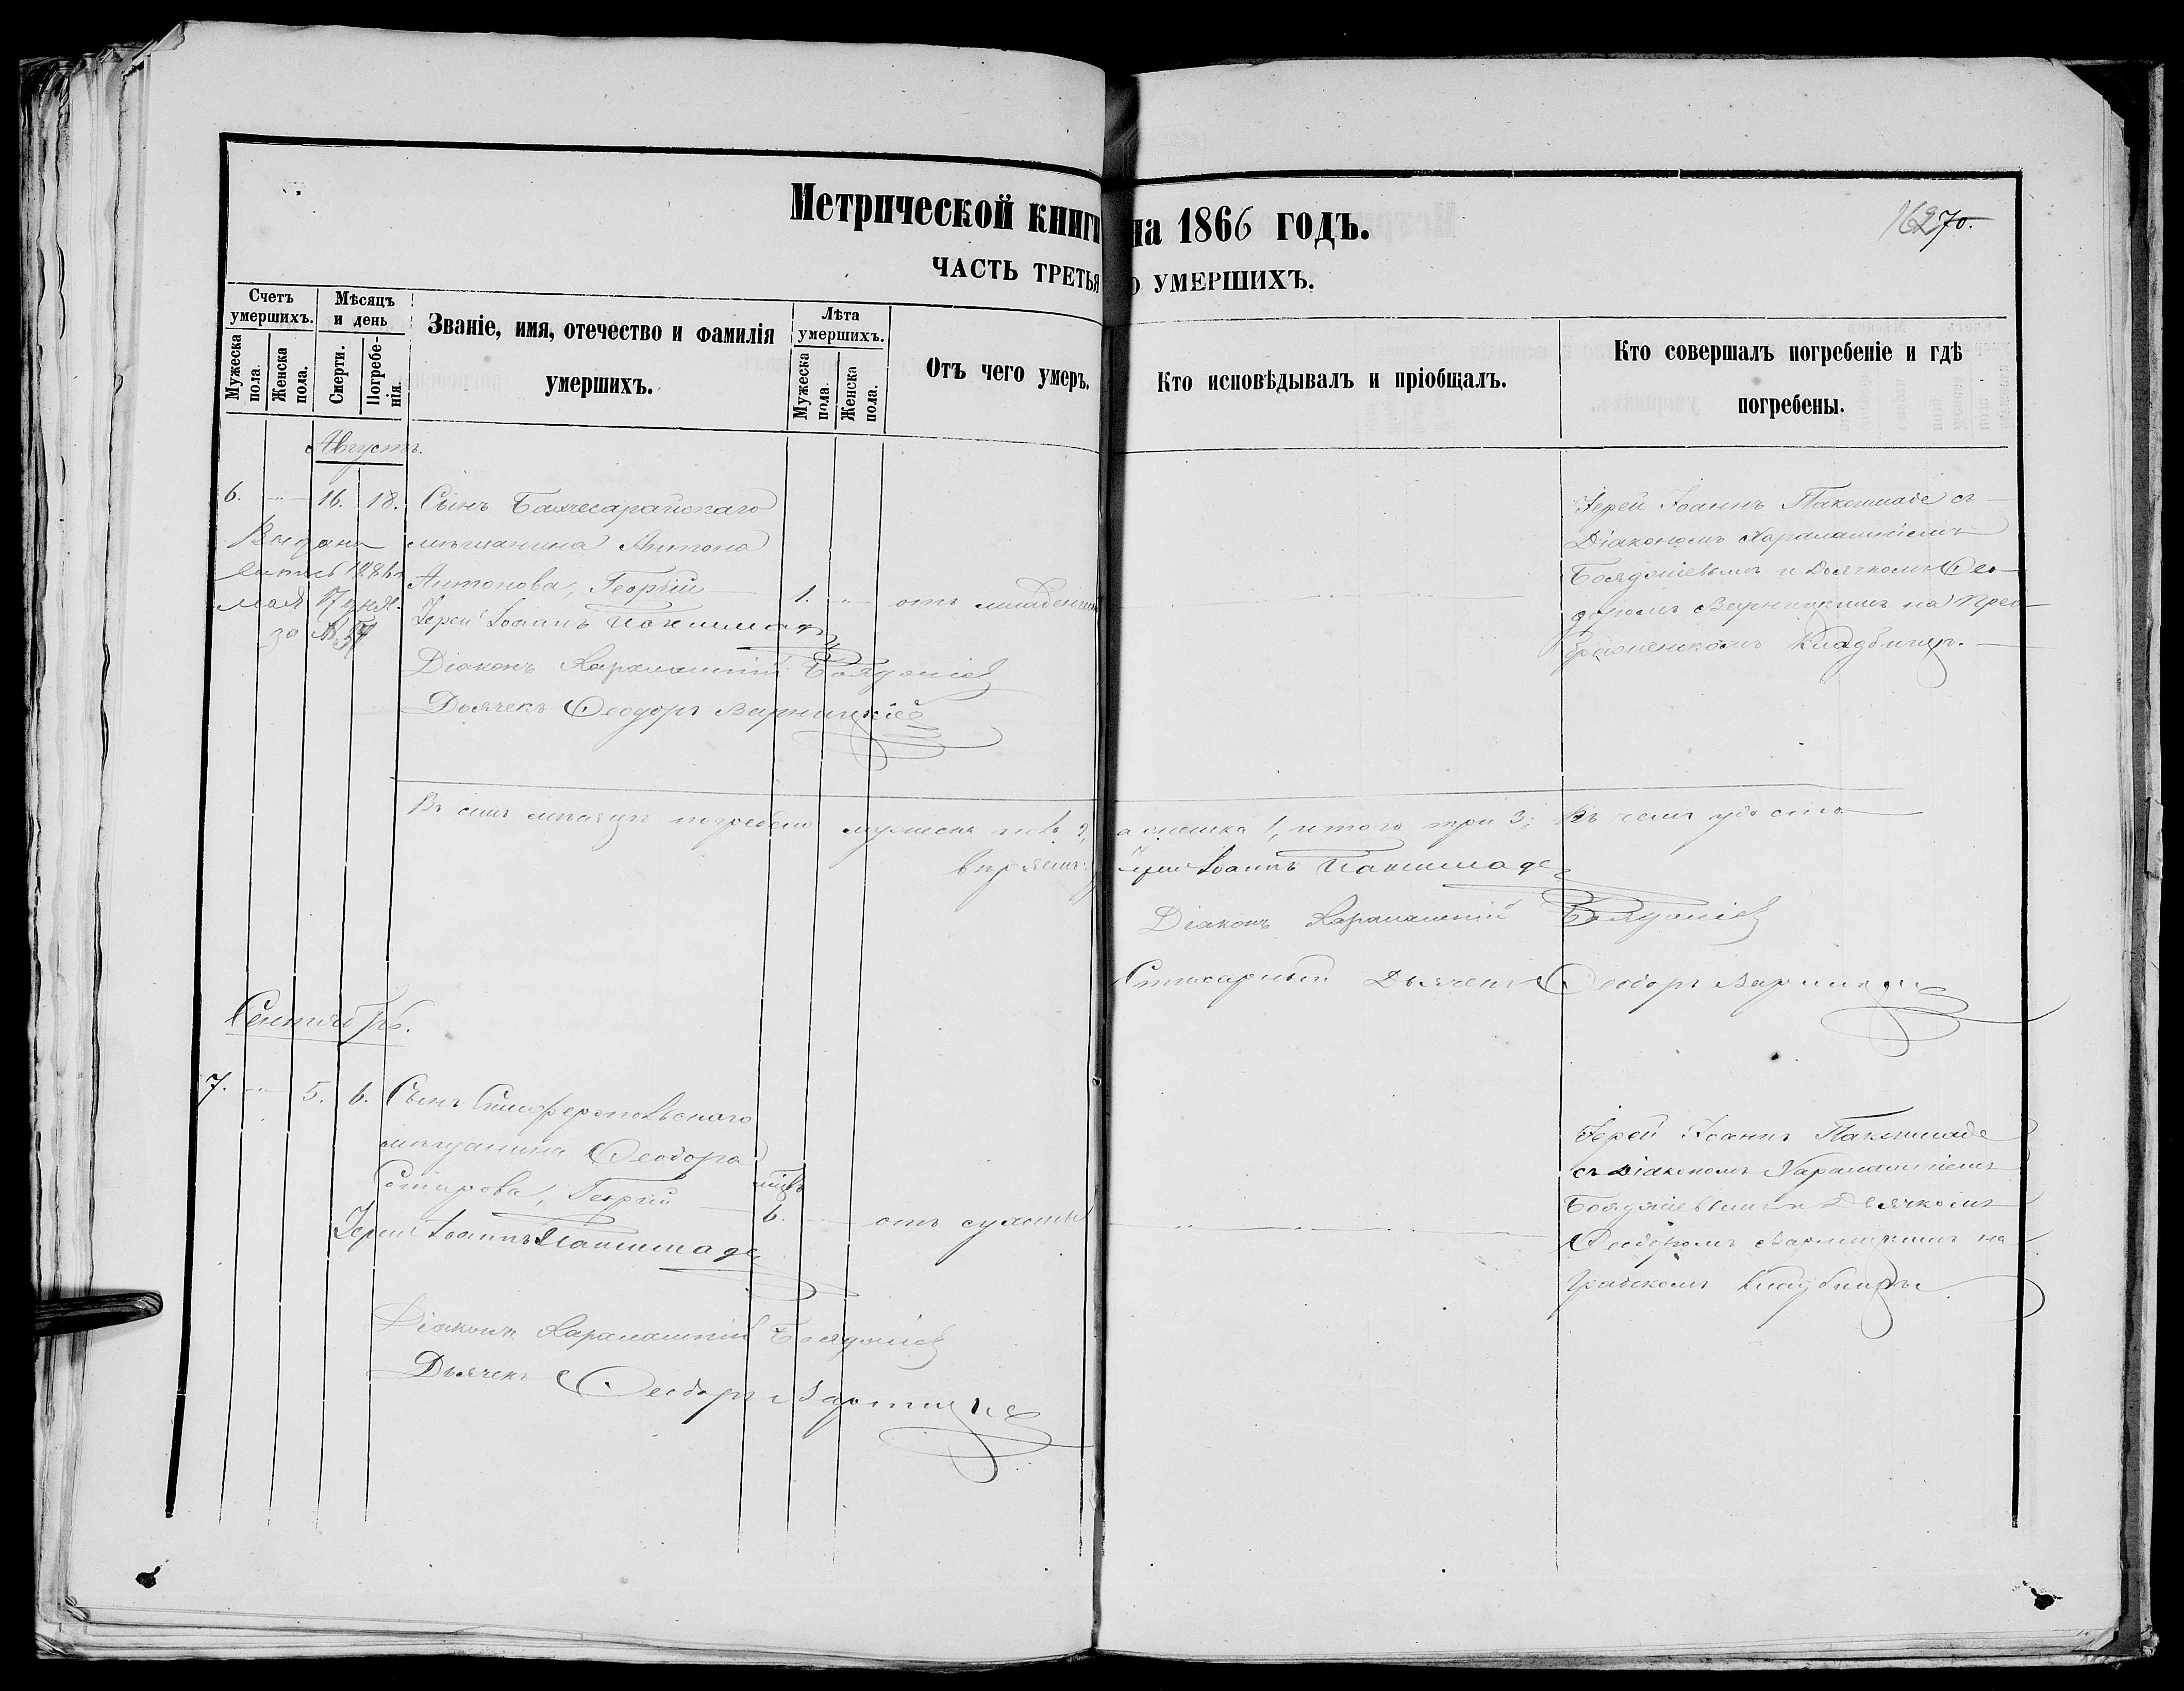 Метрической книги на 1866 годъ.
162 70.
ЧАСТЬ ТРЕТЬЯ О УМЕРШИХЪ.
Счетъ умершихъ.
Мужеска пола.
Женска пола.
Мѣсяцъ и день
Смерти.
Погребе-
нія.
Званіе, имя, отечество и фамилія
умершихъ.
Лѣта умершихъ.
Мужеска пола.
Женска пола.
Отъ чего умеръ.
Кто исповѣдывалъ и пріобщалъ.
Кто совершалъ погребеніе и гдѣ
погребены.
Августъ.
6. 16. 18. Сынъ Бахчесарайскаго
мѣщанина Антона
Антонова, Георгій 1. отъ младенческ
Іерей Іоаннъ Пакшмаде
Діаконъ Харалампій Бояджіев
Дьячекъ Ѳеодоръ Варницкій
Выдана
мая 17 дня
за № 54
Іерей Іоаннъ Пакшмаде съ
Діакономъ Харалампіемъ
Бояджіевымъ и Дьячкомъ Ѳео-
доромъ Варницкимъ на Прео-
браженскомъ Кладбищѣ.
Въ семъ мѣсяцѣ погребено мужеска пола 2, а женска 1, итого три 3; Въ чемъ удосто-
вѣряемъ: Іерей Іоаннъ Пакшмаде
Діаконъ Харалампій Бояджіев
Дьячекъ Ѳеодоръ Варницкій
Сентябрь.
7. 5. 6. Сынъ Симферопольскаго
мѣщанина Ѳеодора
Сотирова, Георгій мѣсц. 6. отъ сухотъ
Іерей Іоаннъ Пакшмаде
Діаконъ Харалампій Бояджіев
Дьячекъ Ѳеодоръ Варницкій
Іерей Іоаннъ Пакшмаде
съ Діакономъ Харалампіемъ
Бояджіевымъ и Дьячкомъ
Ѳеодоромъ Варницкимъ на
Градскомъ Кладбищѣ